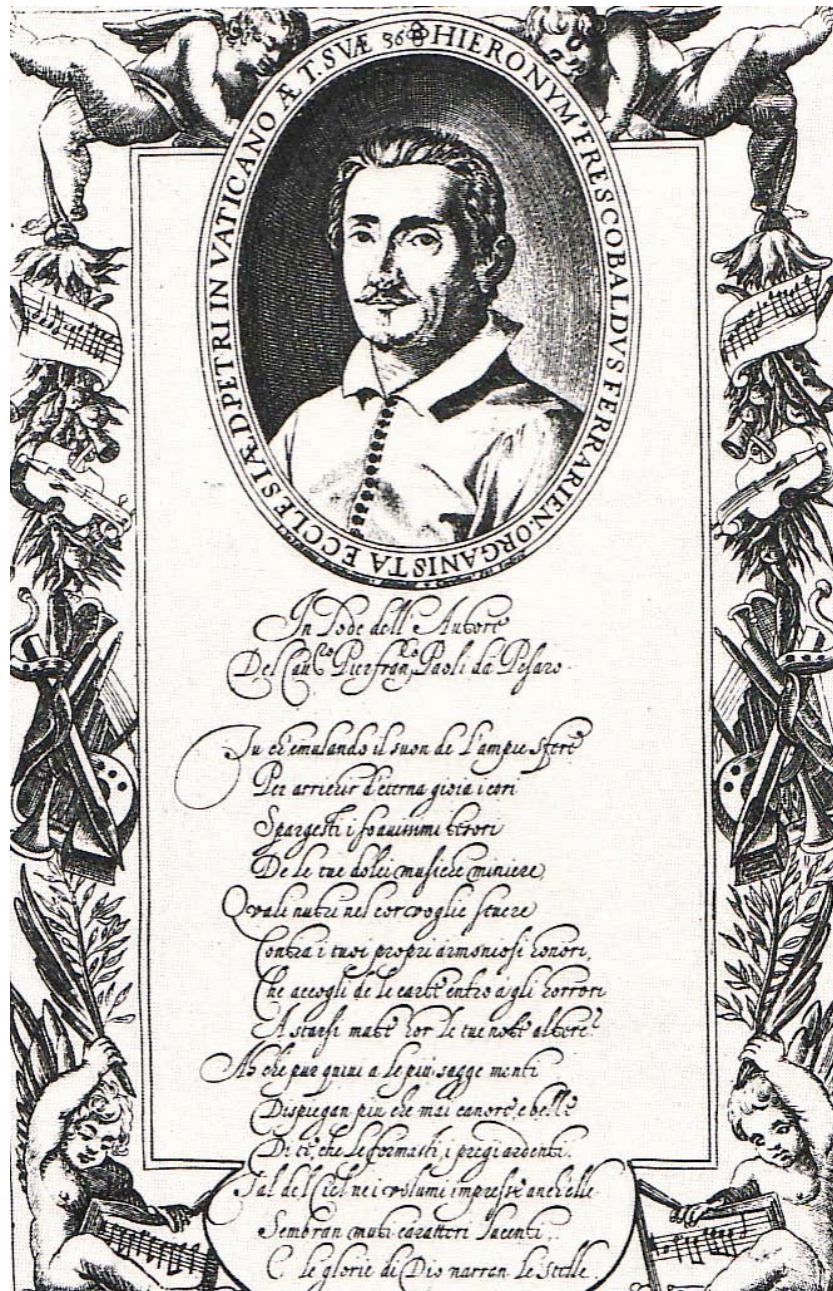 HIERONYM' FRESCOBALDVS FERRARIEN. ORGANISTA ECCLESIÆ. D. PETRI IN VATICANO Æ T. SVÆ 36
In Lode dell' Autore
Del Cau.ro Pierfran.co Paoli da Pesaro.
Tu ch'emulando il suon de l'ampie sfere
Per arricchir d'eterna gioia i cori
Spargesti i soauissimi tesori
De le tue dolci musiche miniere,
Quali nutri nel cor voglie seuere
Contra i tuoi propri armoniosi honori,
Che accogli de le carte entro a gli horrori
A starsi mute hor le tue note altere?
Ah che pur quiui a le più sagge menti
Dispiegan piu che mai canore, e belle
Di te, che le formasti, i pregi ardenti.
Tal del Ciel ne i volumi impresse anch'elle
Sembran muti caratteri lucenti,
E le glorie di Dio narran le stelle.